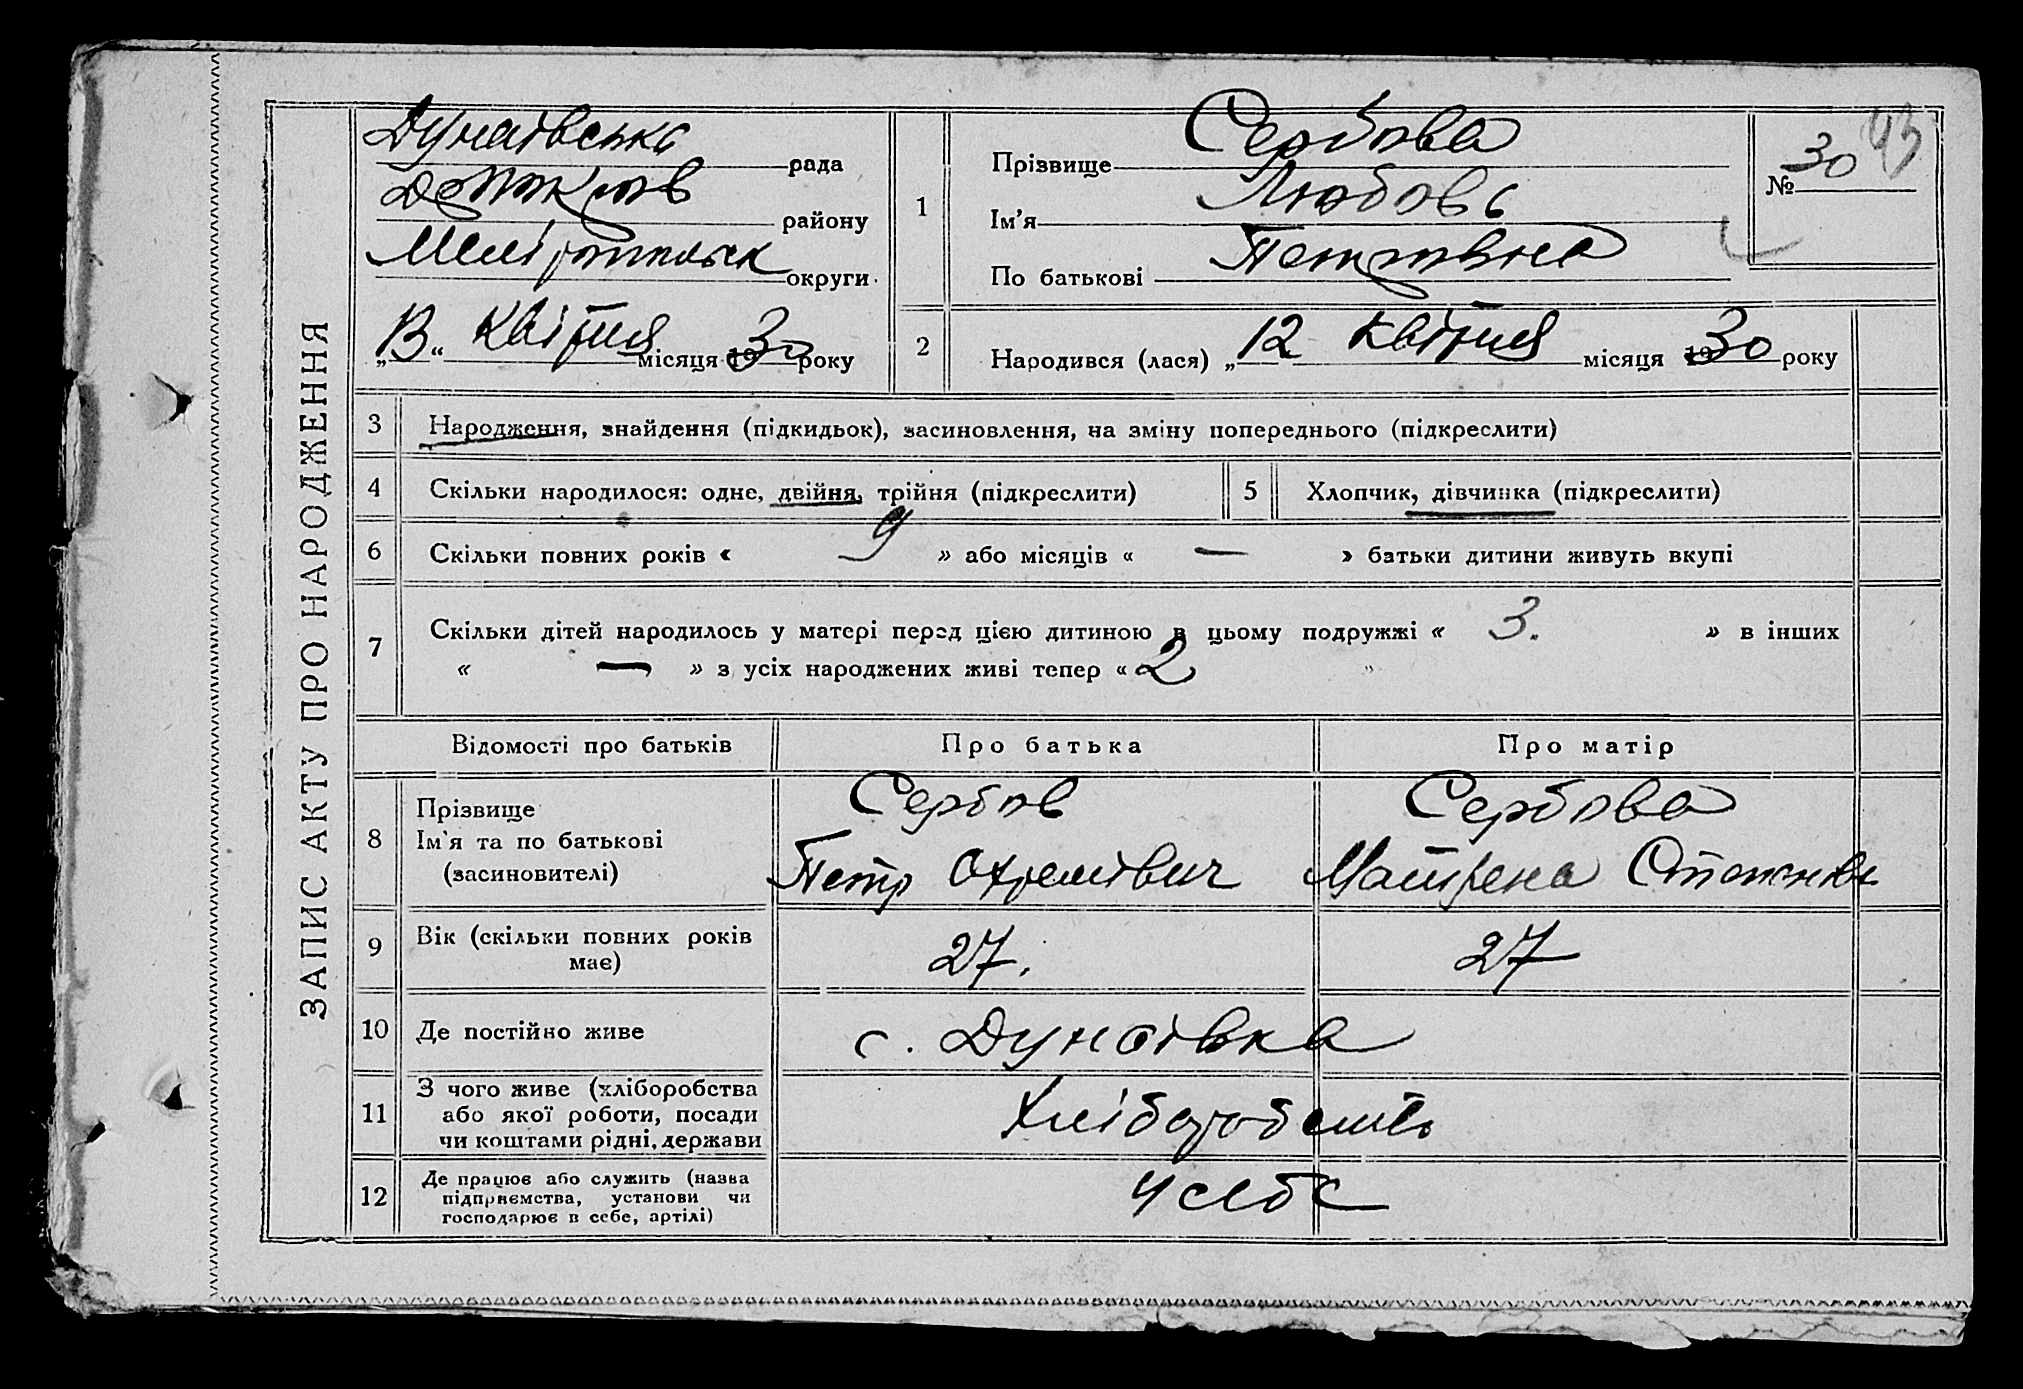 ЗАПИС АКТУ ПРО НАРОДЖЕННЯ
Дунаівська рада
району
Меліропольск округи
„13“ Квітня місяця 1930 року
1
Прізвище Сербова
Ім’я Любовь
По батькові Петровна
№ 30
93
2
Народився (лася) „12 Квітня місяця 1930 року
3
Народження, знайдення (підкидьок), засиновлення, на зміну попереднього (підкреслити)
4
Скільки народилося: одне, двійня, трійня (підкреслити)
5
Хлопчик, дівчинка (підкреслити)
6
Скільки повних років « 9 » або місяців « — » батьки дитини живуть вкупі
7
Скільки дітей народилось у матері перед цією дитиною в цьому подружжі « 3. » в інших
« — » з усіх народжених живі тепер « 2 »
Відомості про батьків
Про батька
Про матір
8
Прізвище
Ім’я та по батькові
(засиновителі)
Сербов
Петр Охремівич
Сербова
Матрена Степановн
9
Вік (скільки повних років
має)
27.
27
10
Де постійно живе
с. Дунаівка
11
З чого живе (хліборобства
або якої роботи, посади
чи коштами рідні, держави
Хліборобсть
12
Де працює або служить (назва
підприємства, установи чи
господарює в себе, артілі)
У себе